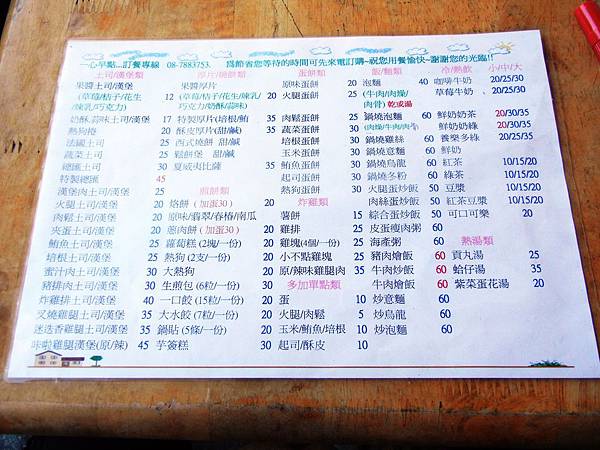 一心早點...訂餐專線 08-7883753. 爲節省您等待的時間可先來電訂購~祝您用餐愉快~謝謝您的光臨!!
土司/漢堡類
果醬土司/漢堡
(草莓/桔子/花生 12
/煉乳/巧克力)
奶酥.蒜味土司/漢堡 17
熱狗捲 20
法國土司 25
蔬菜土司 25
總匯土司 30
特製總匯 45
漢堡肉土司/漢堡 25
火腿土司/漢堡 20
肉鬆土司/漢堡 20
夾蛋土司/漢堡 20
鮪魚土司/漢堡 25
培根土司/漢堡 25
蜜汁肉土司/漢堡 30
豬排肉土司/漢堡 30
炸雞排土司/漢堡 40
叉燒雞腿土司/漢堡 35
迷迭香雞腿土司/漢堡 40
咔啦雞腿漢堡(原/辣) 45
厚片/燒餅類
果醬厚片
(草莓/桔子/花生/煉乳 20
/巧克力/奶酥/蒜味)
特製厚片(培根/鮪 35
酥皮厚片(甜/鹹) 35
西式燒餅 甜/鹹
鬆餅堡 甜/鹹
夏威夷比薩 35
煎餅類
烙餅 (加蛋30) 20
原味/翡翠/春椿/南瓜
蔥肉餅 (加蛋30) 20
蘿蔔糕 (2塊/一份) 20
熱狗 (2支/一份) 20
大熱狗 20
生煎包 (6粒/一份) 30
一口餃 (15粒/一份) 20
大水餃 (7粒/一份) 20
鍋貼 (5條/一份) 20
芋簽糕 30
蛋餅類
原味蛋餅 20
火腿蛋餅 25
肉鬆蛋餅 25
蔬菜蛋餅 30
培根蛋餅 30
玉米蛋餅 30
鮪魚蛋餅 30
起司蛋餅 30
熱狗蛋餅 30
炸雞類
薯餅 15
雞排 25
雞塊(4個/一份) 25
小不點雞塊 35
原/辣味雞腿肉 35
多加單點類
蛋 10
火腿/肉鬆 5
玉米/鮪魚/培根 10
起司/酥皮 10
飯/麵類
泡麵 40
(牛肉/肉燥/
肉骨) 乾或湯
鍋燒泡麵 60
鍋燒雞絲 60
鍋燒意麵 60
鍋燒烏龍 60
鍋燒冬粉 60
火腿蛋炒飯 50
肉絲蛋炒飯 50
綜合蛋炒飯 50
皮蛋瘦肉粥 60
海產粥 60
豬肉燴飯 60
牛肉炒飯 60
牛肉燴飯 60
炒意麵 60
炒烏龍 60
炒泡麵 60
冷/熱飲 小/中/大
咖啡牛奶 20/25/30
草莓牛奶 20/25/30
鮮奶奶茶 20/30/35
鮮奶奶綠 20/30/35
養樂多綠 20/25/35
鮮奶
紅茶 10/15/20
綠茶 10/15/20
豆漿 10/15/20
紅茶豆漿 10/15/20
可口可樂 20
熱湯類
貢丸湯 25
蛤仔湯 35
紫菜蛋花湯 20